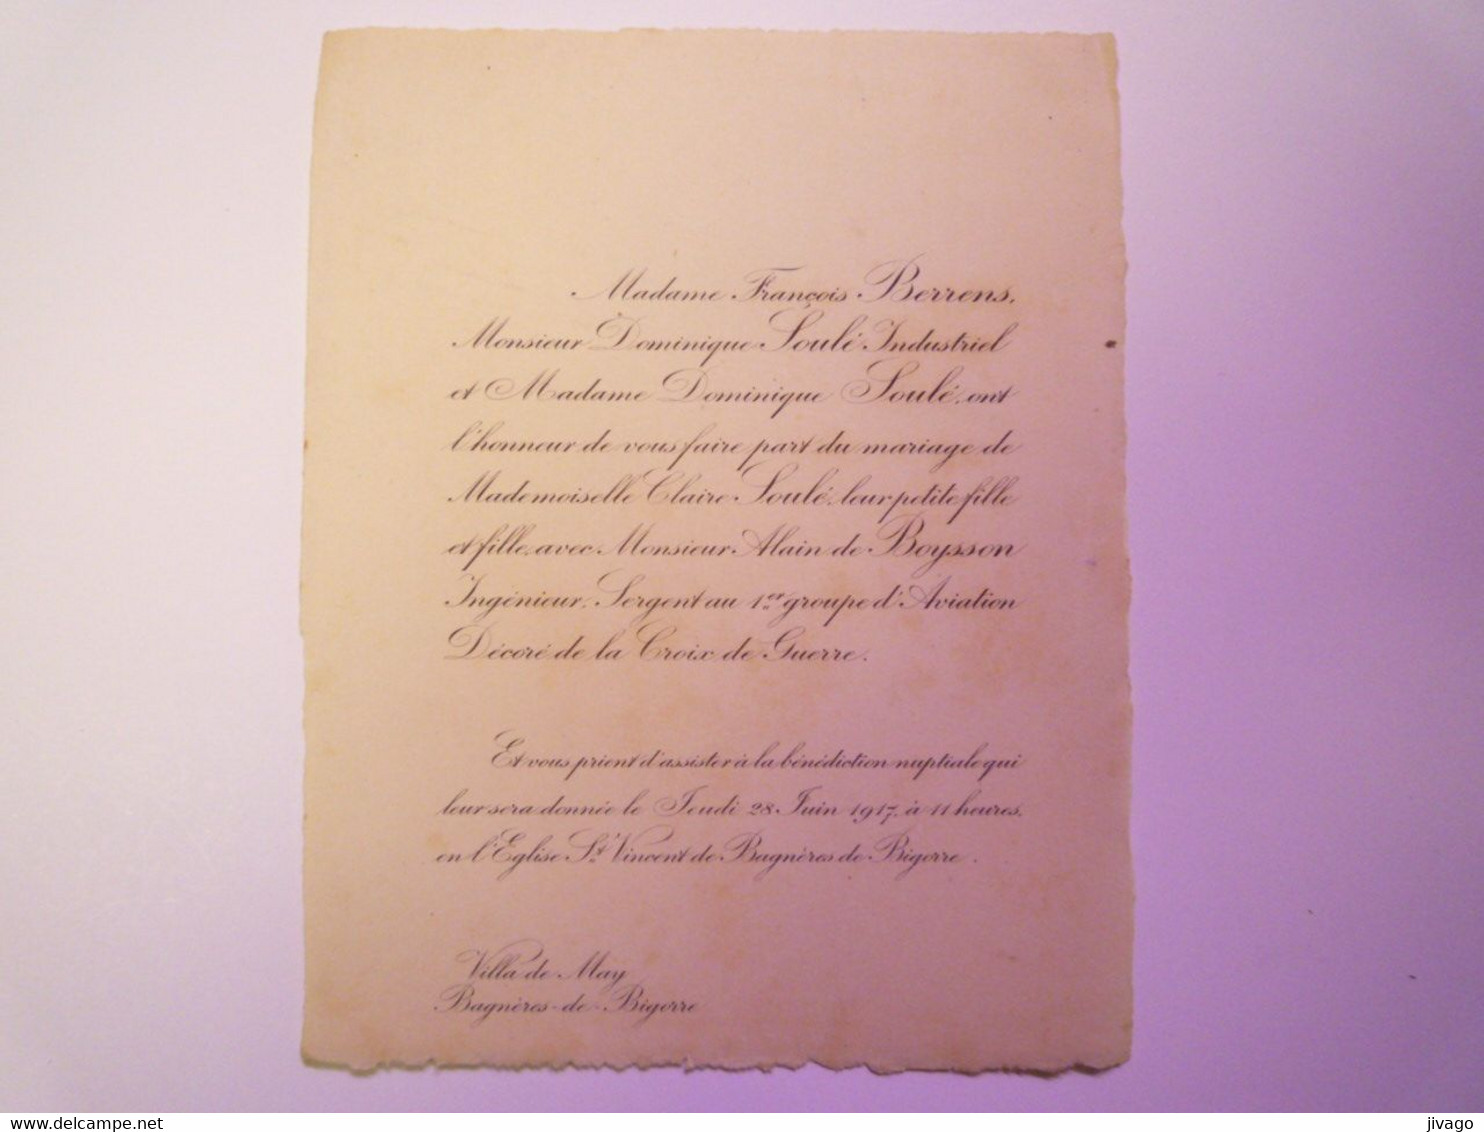 Madame François Berrens,
Monsieur Dominique Soulé Industriel
et Madame Dominique Soulé, ont
l'honneur de vous faire part du mariage de
Mademoiselle Claire Soulé, leur petite fille
et fille, avec Monsieur Alain de Boysson
Ingénieur, Sergent au 1er groupe d'Aviation
Décoré de la Croix de Guerre.
Et vous prient d'assister à la bénédiction nuptiale qui
leur sera donnée le Jeudi 28 Juin 1917, à 11 heures,
en l'Eglise St Vincent de Bagnères de Bigorre.
Villa de May
Bagnères-de-Bigorre
delcampe.net
jivago